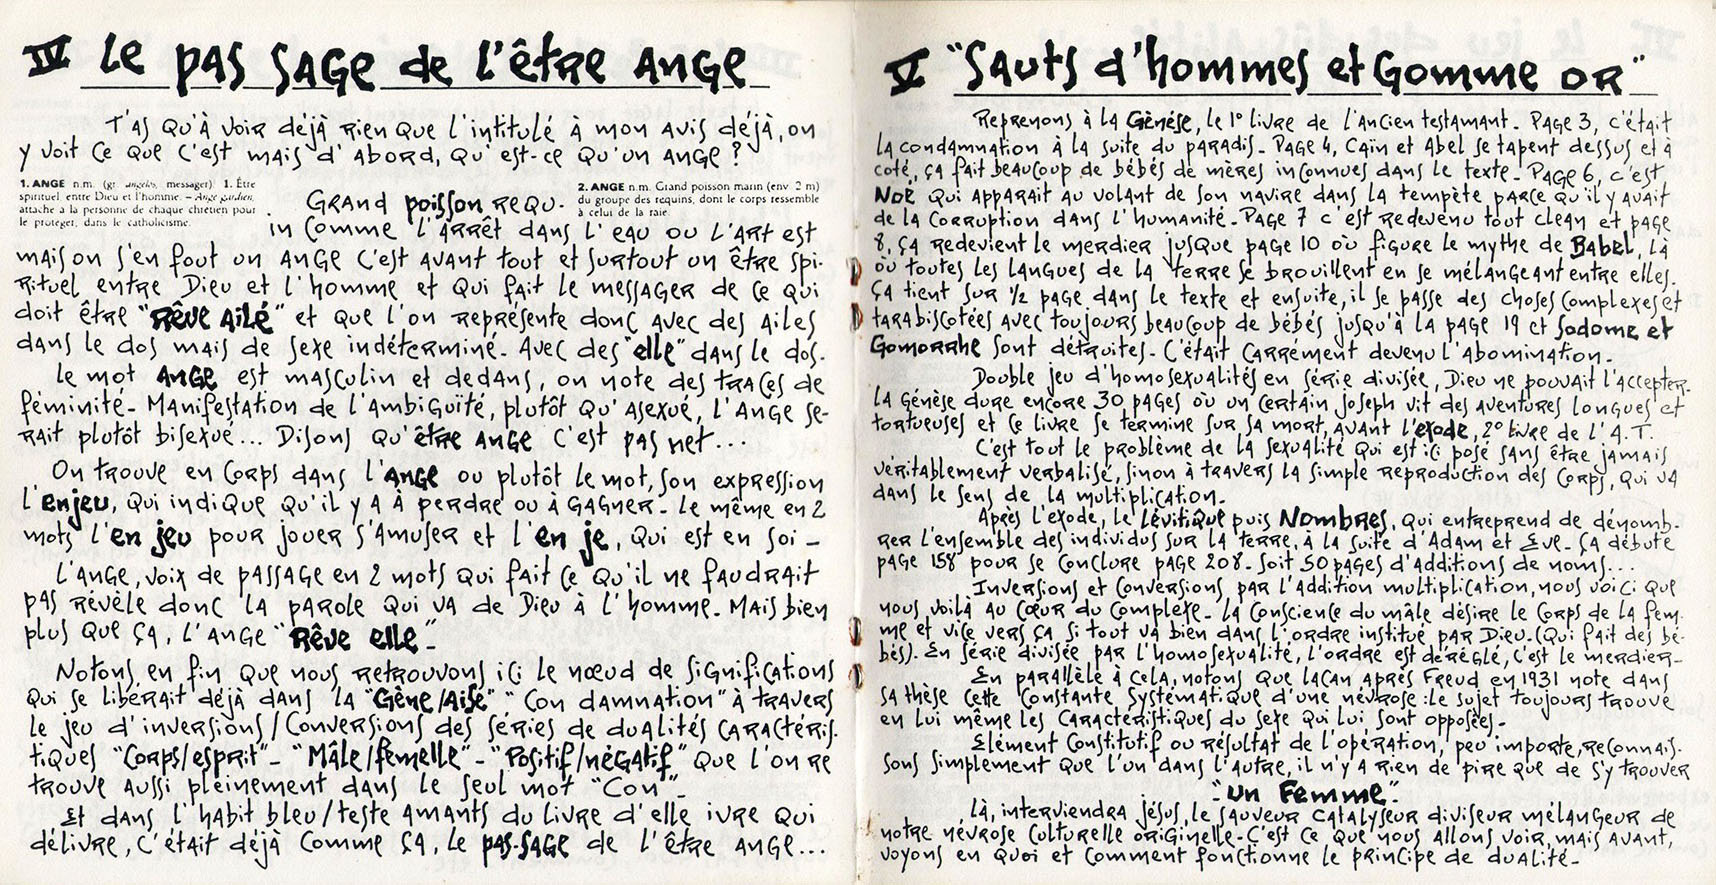 IV Le pas sage de l'être Ange
T'as qu'à voir déjà rien que l'intitulé à mon avis déjà, on
y voit ce que c'est mais d'abord, qu'est-ce qu'un ange ?
1. ANGE n.m. (gr. angelos, messager). 1. Être
spirituel entre Dieu et l'homme. – Ange gardien,
attaché à la personne de chaque chrétien pour
le protéger, dans le catholicisme.
2. ANGE n.m. Grand poisson marin (env. 2 m)
du groupe des requins, dont le corps ressemble
à celui de la raie.
Grand poisson requ-
in comme l'arrêt dans l'eau ou l'art est
mais on s'en fout un ange c'est avant tout et surtout un être spi-
rituel entre Dieu et l'homme et qui fait le messager de ce qui
doit être "Rêve Ailé" et que l'on représente donc avec des ailes
dans le dos mais de sexe indéterminé. Avec des "elle" dans le dos.
Le mot Ange est masculin et dedans, on note des traces de
féminité. Manifestation de l'ambiguïté, plutôt qu'asexué, l'ange se-
rait plutôt bisexué... Disons qu'être ange c'est pas net...
On trouve en corps dans l'Ange ou plutôt le mot, son expression
l'enjeu, qui indique qu'il y a à perdre ou à gagner. Le même en 2
mots l'en jeu pour jouer s'amuser et l'en je, qui est en soi _
L'ange, voix de passage en 2 mots qui fait ce qu'il ne faudrait
pas révèle donc la parole qui va de Dieu à l'homme. Mais bien
plus que ça, l'ange "Rêve elle".
Notons, en fin que nous retrouvons ici le nœud de significations
qui se libérait déjà dans la "Gène/Aise". "Con damnation" à travers
le jeu d'inversions/conversions des séries de dualités caractéris.
tiques "Corps/esprit"_ "Mâle/femelle"_ "Positif/négatif" que l'on re
trouve aussi pleinement dans le seul mot "Con"_
Et dans l'habit bleu/teste amants du livre d'elle ivre qui
délivre, c'était déjà comme ça, le pas-sage de l'être ange...
V "Sauts d'hommes et Gomme or"
Reprenons à la Génèse, le 1° livre de l'ancien testamant. Page 3, c'était
la condamnation à la suite du paradis. Page 4, Caïn et Abel se tapent dessus et à
coté, ça fait beaucoup de bébés de mères inconnues dans le texte. Page 6, c'est
Noé qui apparait au volant de son navire dans la tempète parce qu'il y avait
de la corruption dans l'humanité. Page 7 c'est redevenu tout clean et page
8, ça redevient le merdier jusque page 10 où figure le mythe de Babel, là
où toutes les langues de la terre se brouillent en se mélangeant entre elles.
ça tient sur 1/2 page dans le texte et ensuite, il se passe des choses complexes et
tarabiscotées avec toujours beaucoup de bébés jusqu'à la page 19 et Sodome et
Gomorrhe sont détruites. C'était carrément devenu l'abomination.
Double jeu d'homosexualités en série divisée, Dieu ne pouvait l'accepter.
la génèse dure encore 30 pages où un certain joseph vit des aventures longues et
tortueuses et ce livre se termine sur sa mort, avant l'exode, 2° livre de l'A.T.
C'est tout le problème de la sexualité qui est ici posé sans être jamais
véritablement verbalisé, sinon à travers la simple reproduction des corps, qui va
dans le sens de la multiplication.
Après l'exode, le lévitique puis Nombres, qui entreprend de dénomb-
rer l'ensemble des individus sur la terre, à la suite d'Adam et Eve. ça débute
page 158 pour se conclure page 208. Soit 50 pages d'additions de noms...
Inversions et conversions par l'addition multiplication, nous voici que
nous voilà au cœur du complexe. La conscience du mâle désire le corps de la fem-
me et vice vers ça si tout va bien dans l'ordre institué par Dieu. (qui fait des bé-
bés). En série divisée par l'homosexualité, l'ordre est déréglé, c'est le merdier_
En parallèle à cela, notons que lacan après Freud en 1931 note dans
sa thèse cette constante systématique d'une névrose : le sujet toujours trouve
en lui même les caractéristiques du sexe qui lui sont opposées.
Elément constitutif ou résultat de l'opération, peu importe, reconnais-
sons simplement que l'un dans l'autre, il n'y a rien de pire que de s'y trouver
"un Femme".
Là, interviendra jésus, le sauveur catalyseur diviseur mélangeur de
notre névrose culturelle originelle. C'est ce que nous allons voir, mais avant,
voyons en quoi et comment fonctionne le principe de dualité_